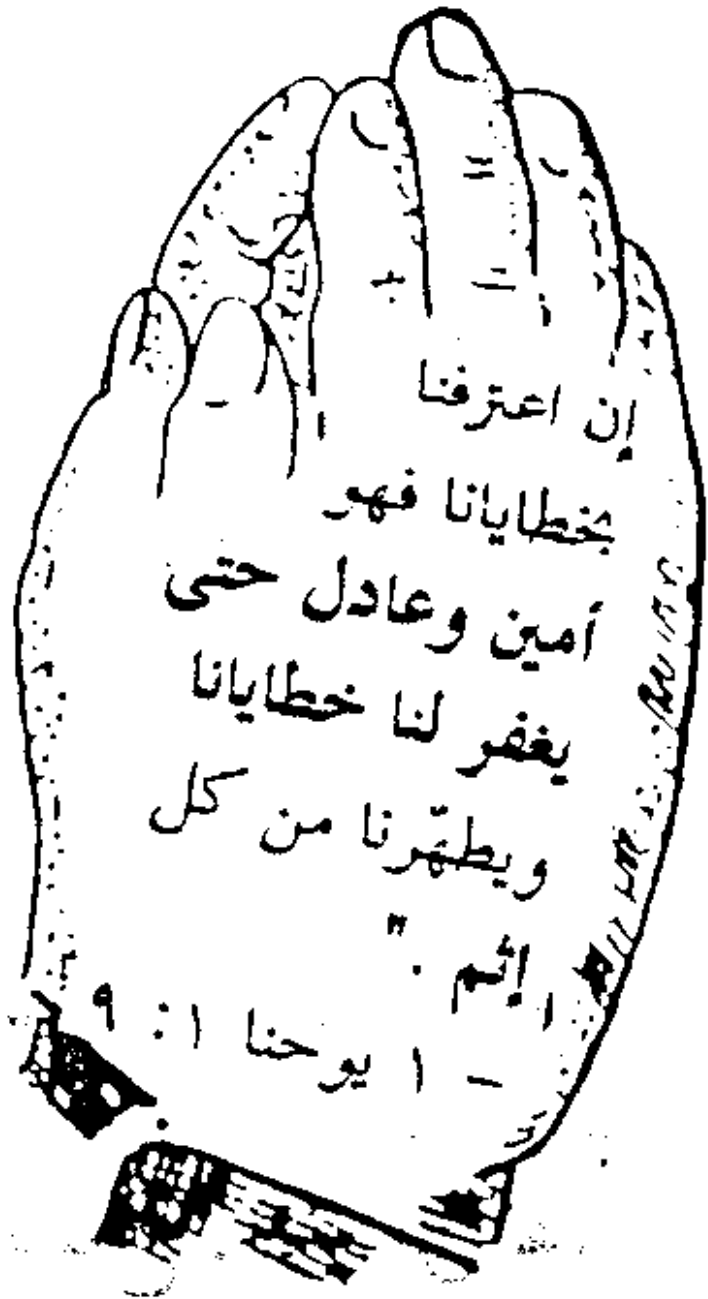 إن اعترفنا
بخطايانا فهو
أمين وعادل حتى
يغفر لنا خطايانا
ويطهّرنا من كل
إثم . "
— ١ يوحنا ١ : ٩